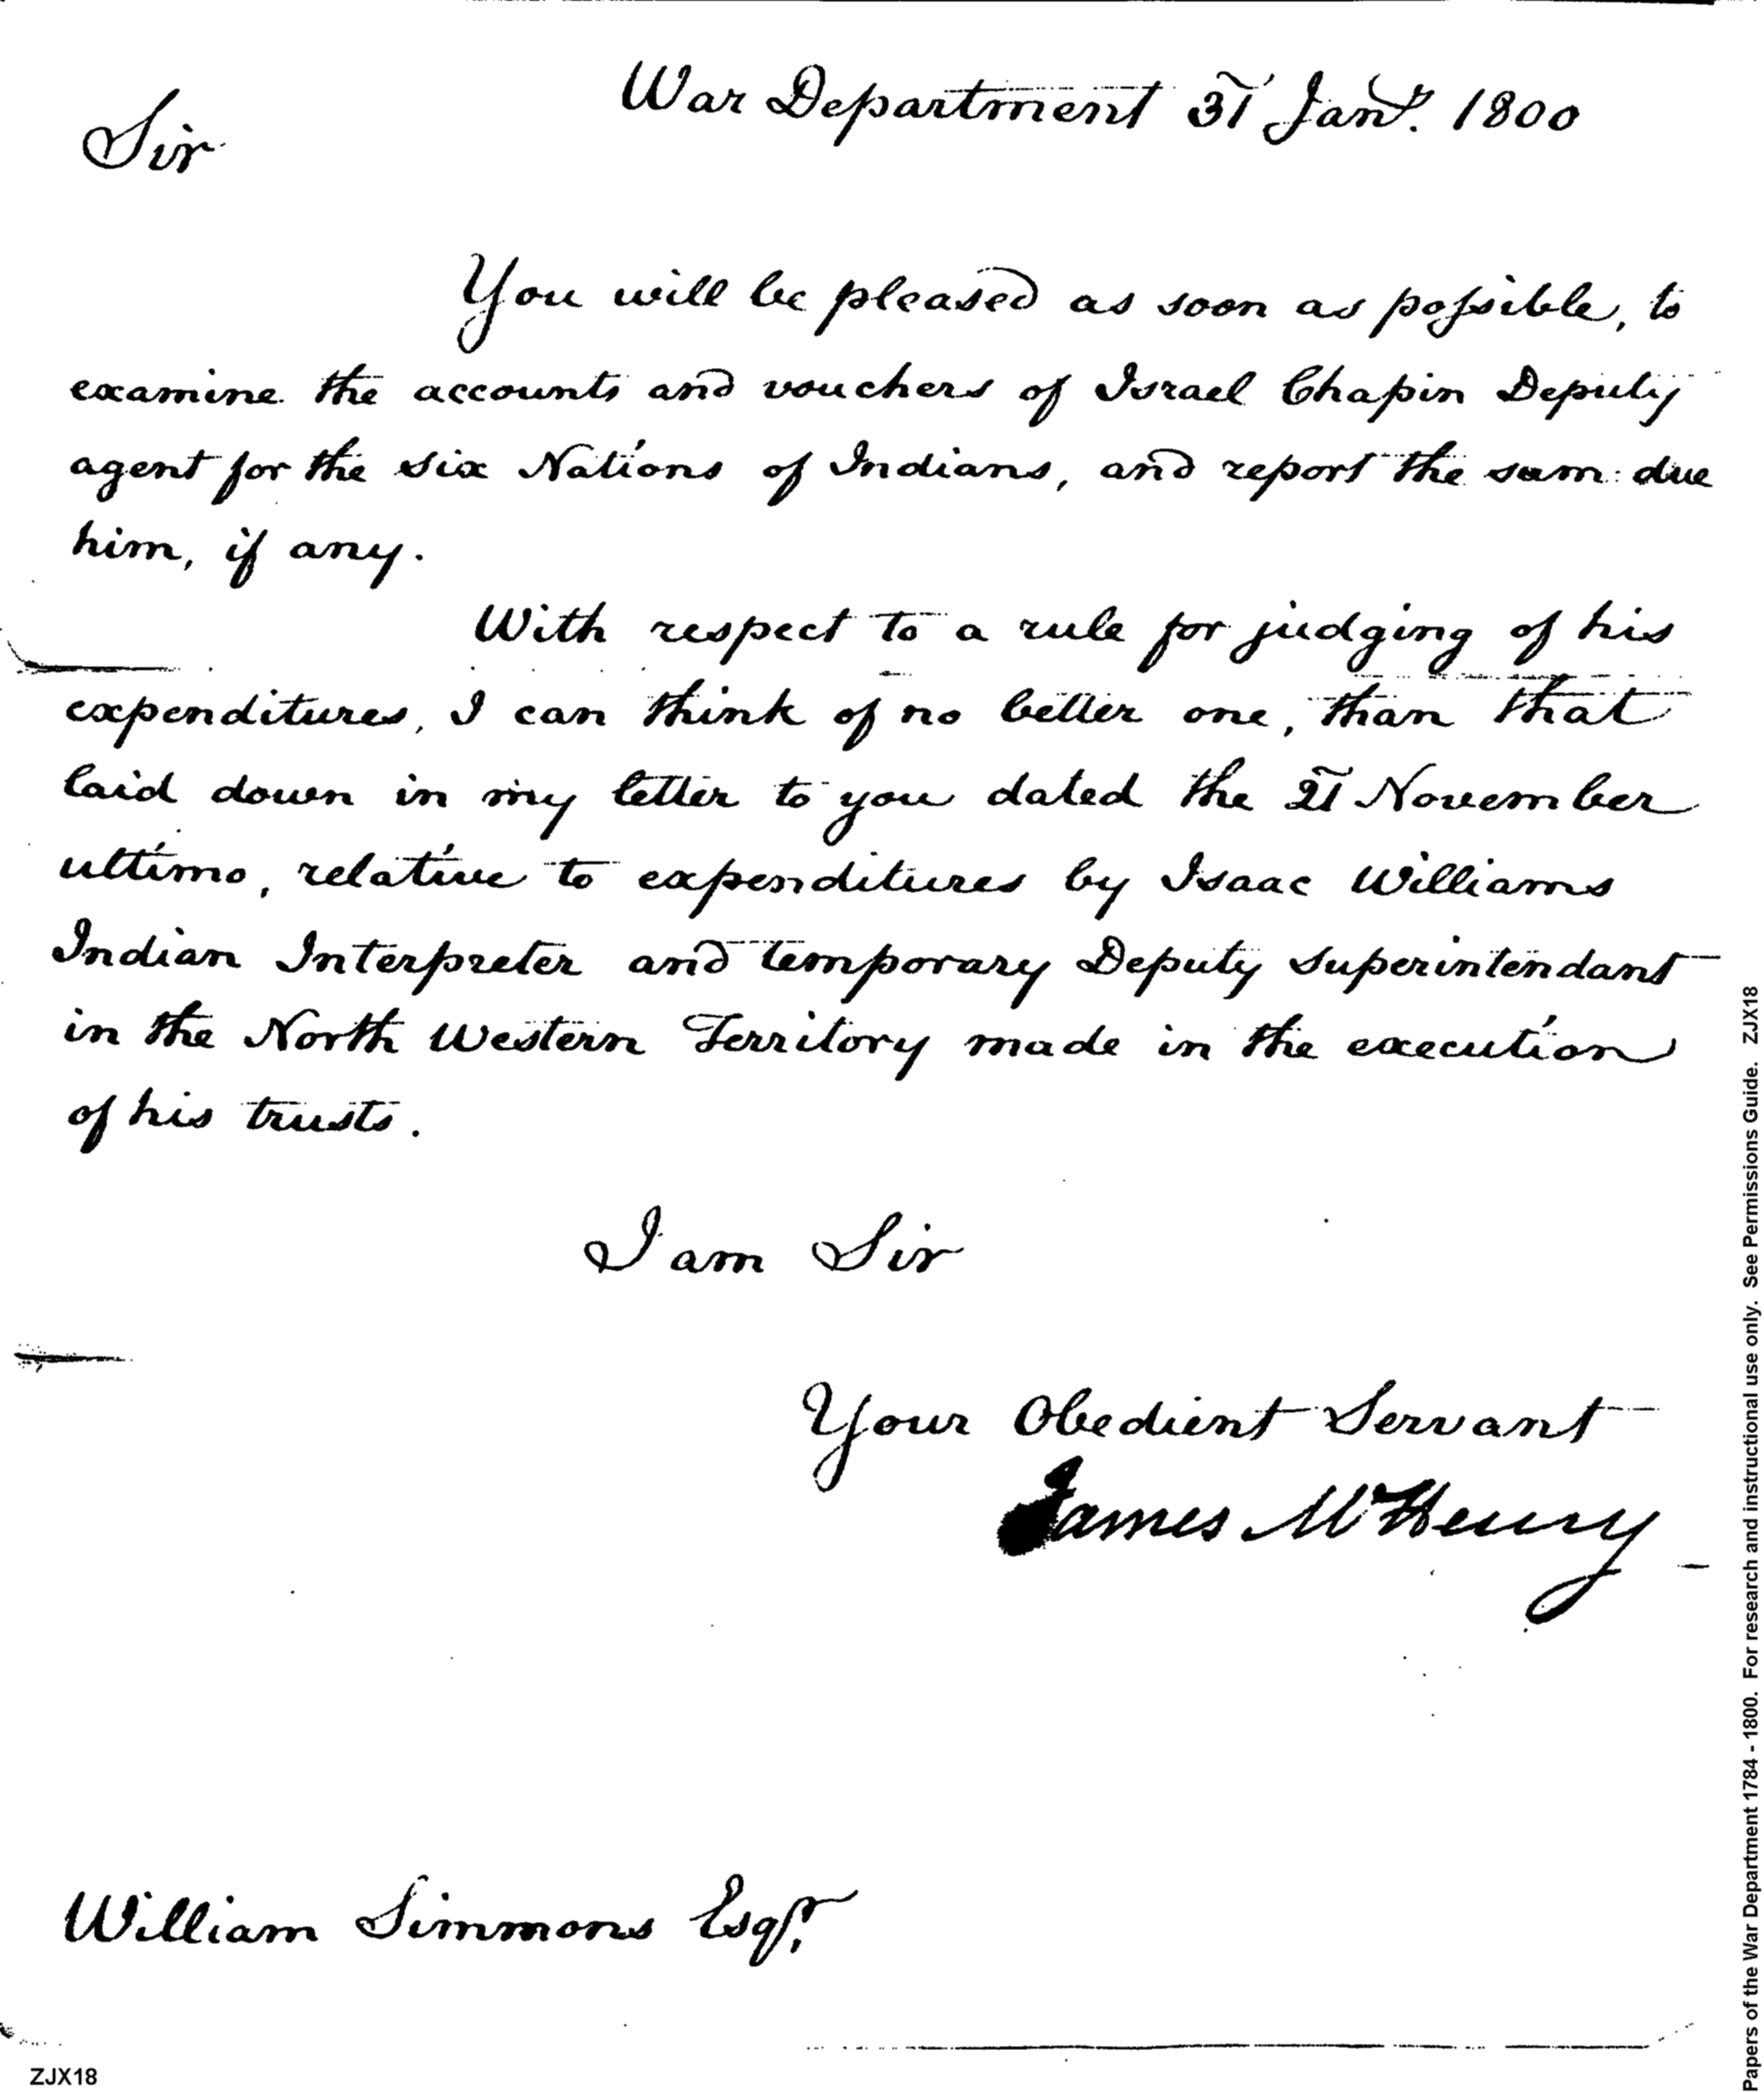 War Department 31 Jany. 1800
Sir
You will be pleased as soon as possible, to
examine the accounts and vouchers of Israel Chapin Deputy
agent for the six Nations of Indians, and report the sum due
him, if any.
With respect to a rule for judging of his
expenditures, I can think of no better one, than that
laid down in my letter to you dated the 21 November
ultimo, relative to expenditures by Isaac Williams
Indian Interpreter and temporary Deputy superintendant
in the North Western Territory made in the execution
of his trusts.
I am Sir
Your Obedient Servant
James McHenry
William Simmons Esqr.
ZJX18
Papers of the War Department 1784 - 1800. For research and instructional use only. See Permissions Guide. ZJX18